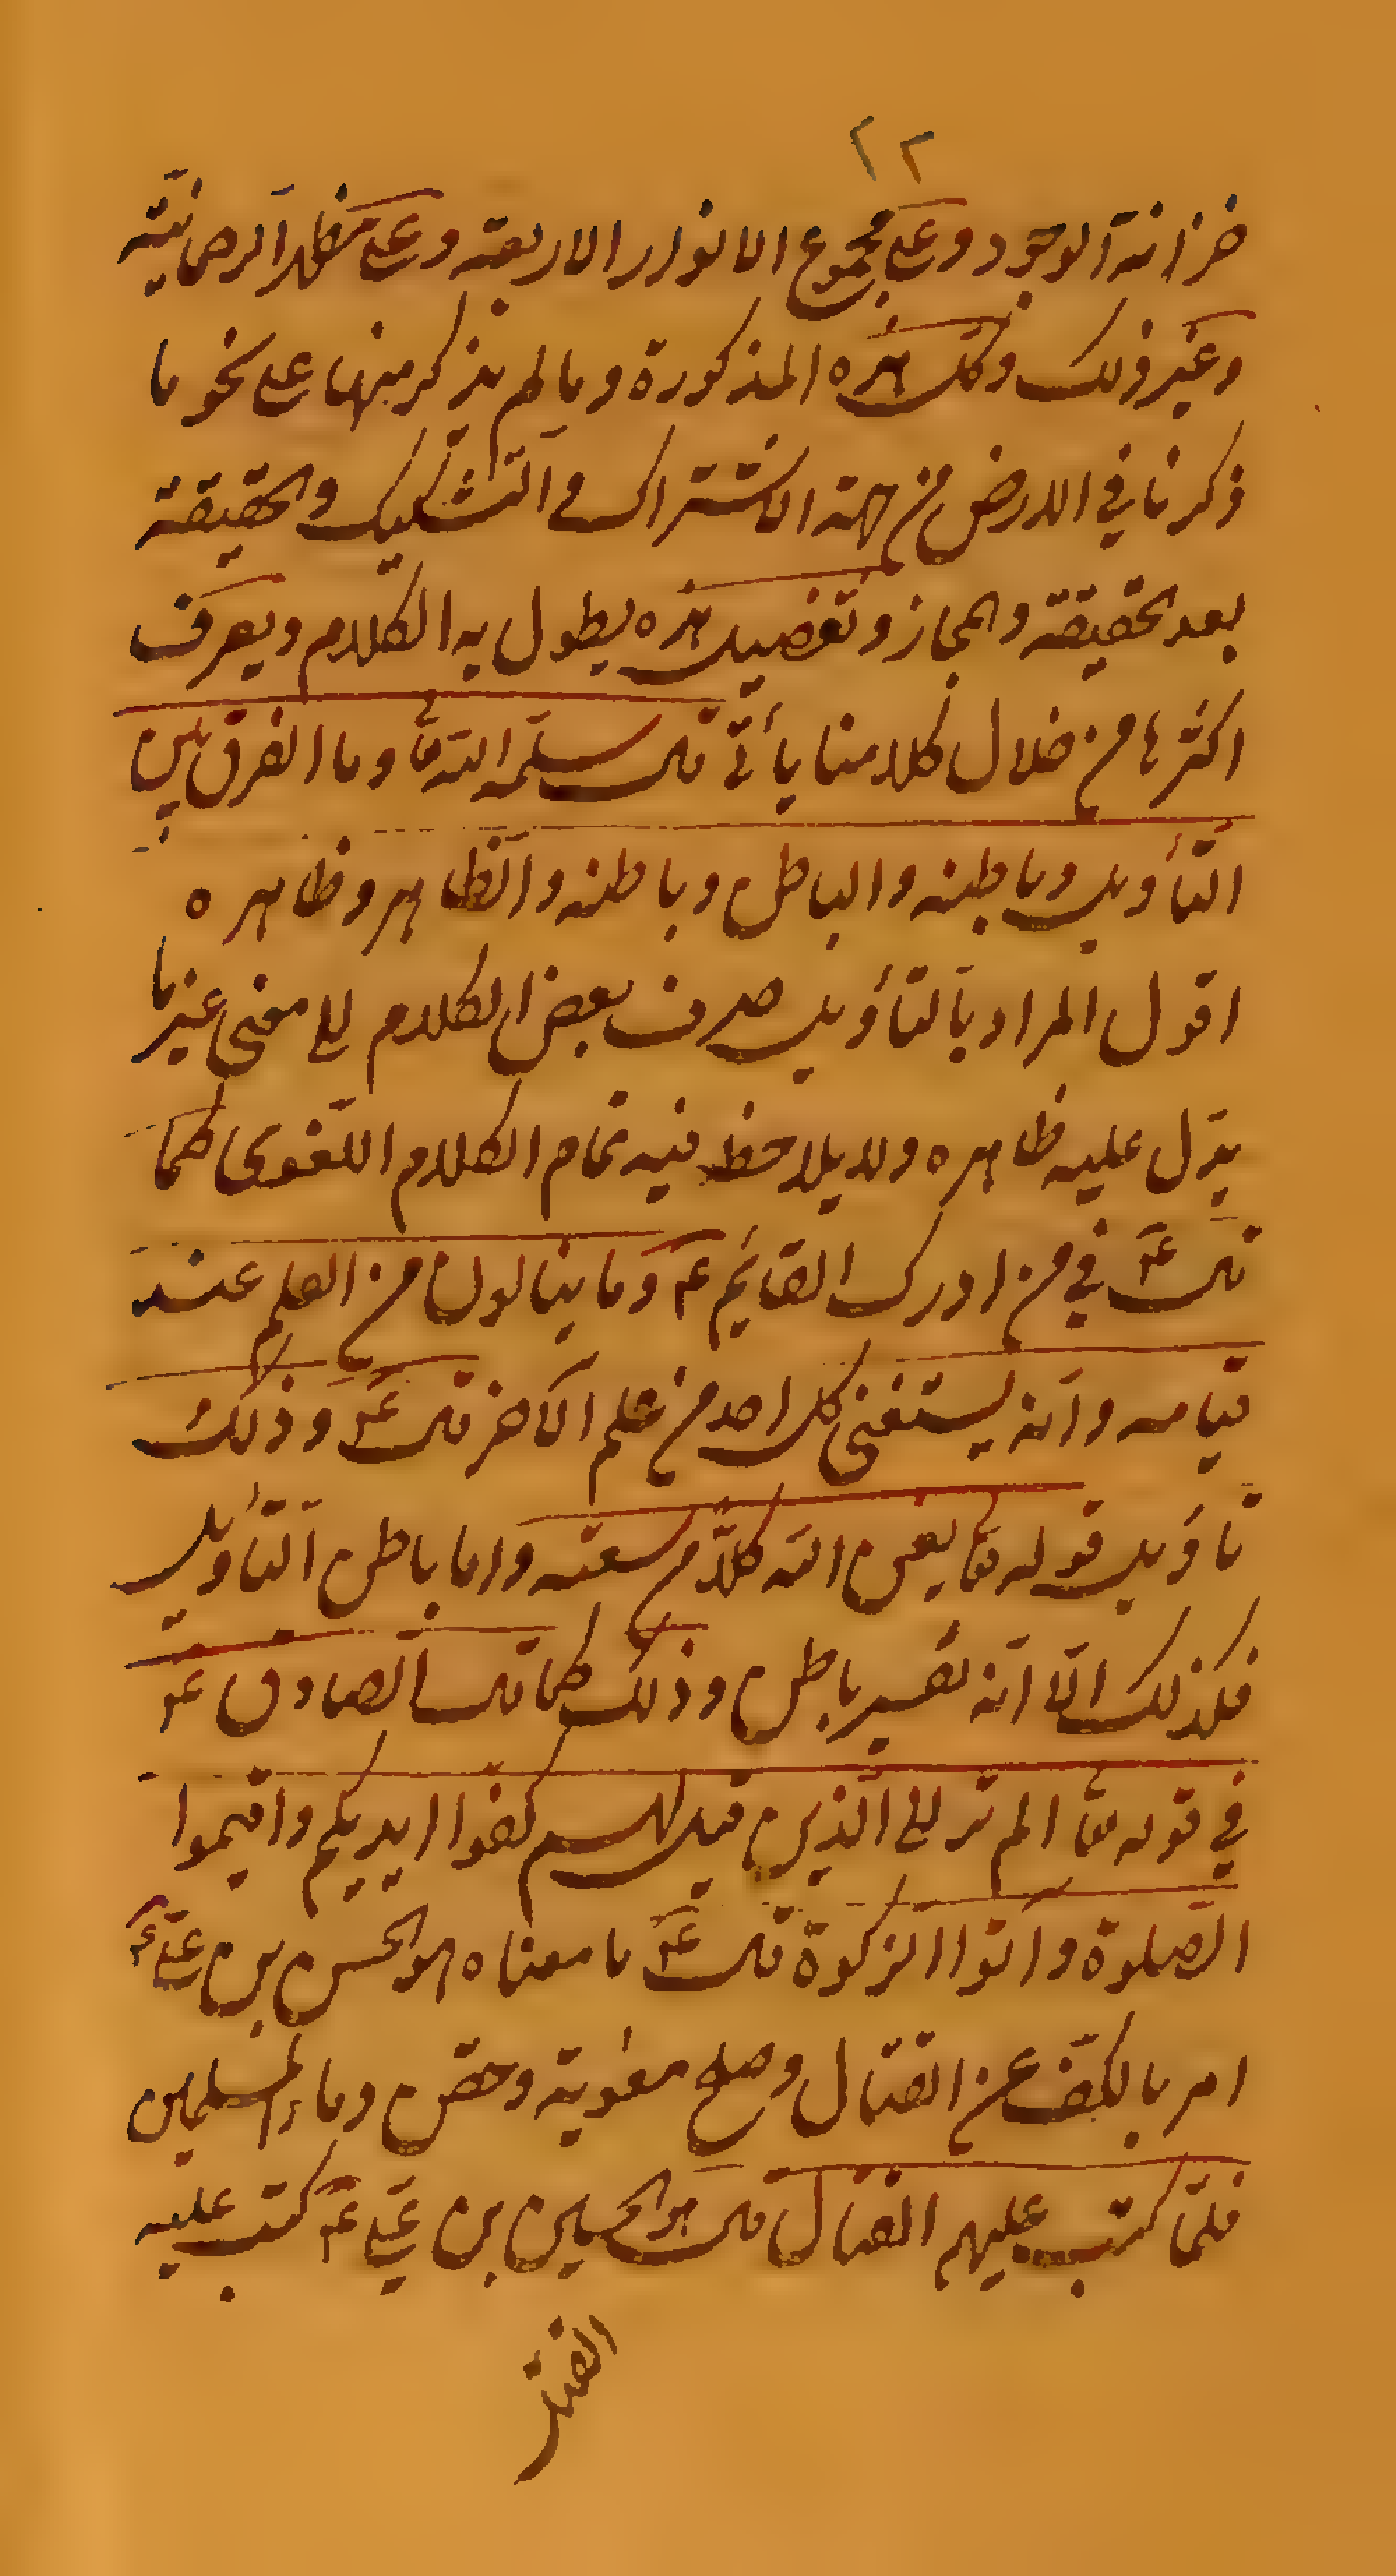 ٢٢
خزانة الوجود وعلى مجموع الانوار الاربعة وعلى مظهر الرحمانيّة
وغير ذلك وكل هذه المذكورة وما لم يذكر منها على نحو ما
ذكرنا في الارض من جهة الاشتراك والتّشكيك والحقيقة
بعد الحقيقة والمجاز وتفصيل هذه يطول به الكلام ويعرف
اكثرها من خلال كلامنا يأتي قال سلّمه الله تعا وما الفرق بين
التّأويل وباطنه والباطن وباطنه والظّاهر وظاهره
اقول المراد بالتّأويل صرف بعض الكلام الى معنى غير ما
يدّل عليه ظاهره ولا يلاحظ فيه تمام الكلام اللّغوى كما
قال ع في من ادرك القائم ع وما ينالون من العلم عند
قيامه وانّه يستغنى كل احد من علم الاخر قال ع وذلك
تاويل قوله تعا يغن الله كلّا من سعته واما باطن التّأويل
فكذلك الّا انّه تفسير باطن وذلك كما قال الصّادق ع
في قوله تعا الم تر الى الّذين قيل لهم كفّوا ايديكم واقيموا
الصّلوة واتوا الزكوة قال ع ما معناه هو الحسن بن علي ع
امر بالكفّ عن القتال وصلح معٰوية وحقن دماء المسلمين
فلمّا كتب عليهم القتال قال هو الحسين بن علي ع كتب عليه
القتل